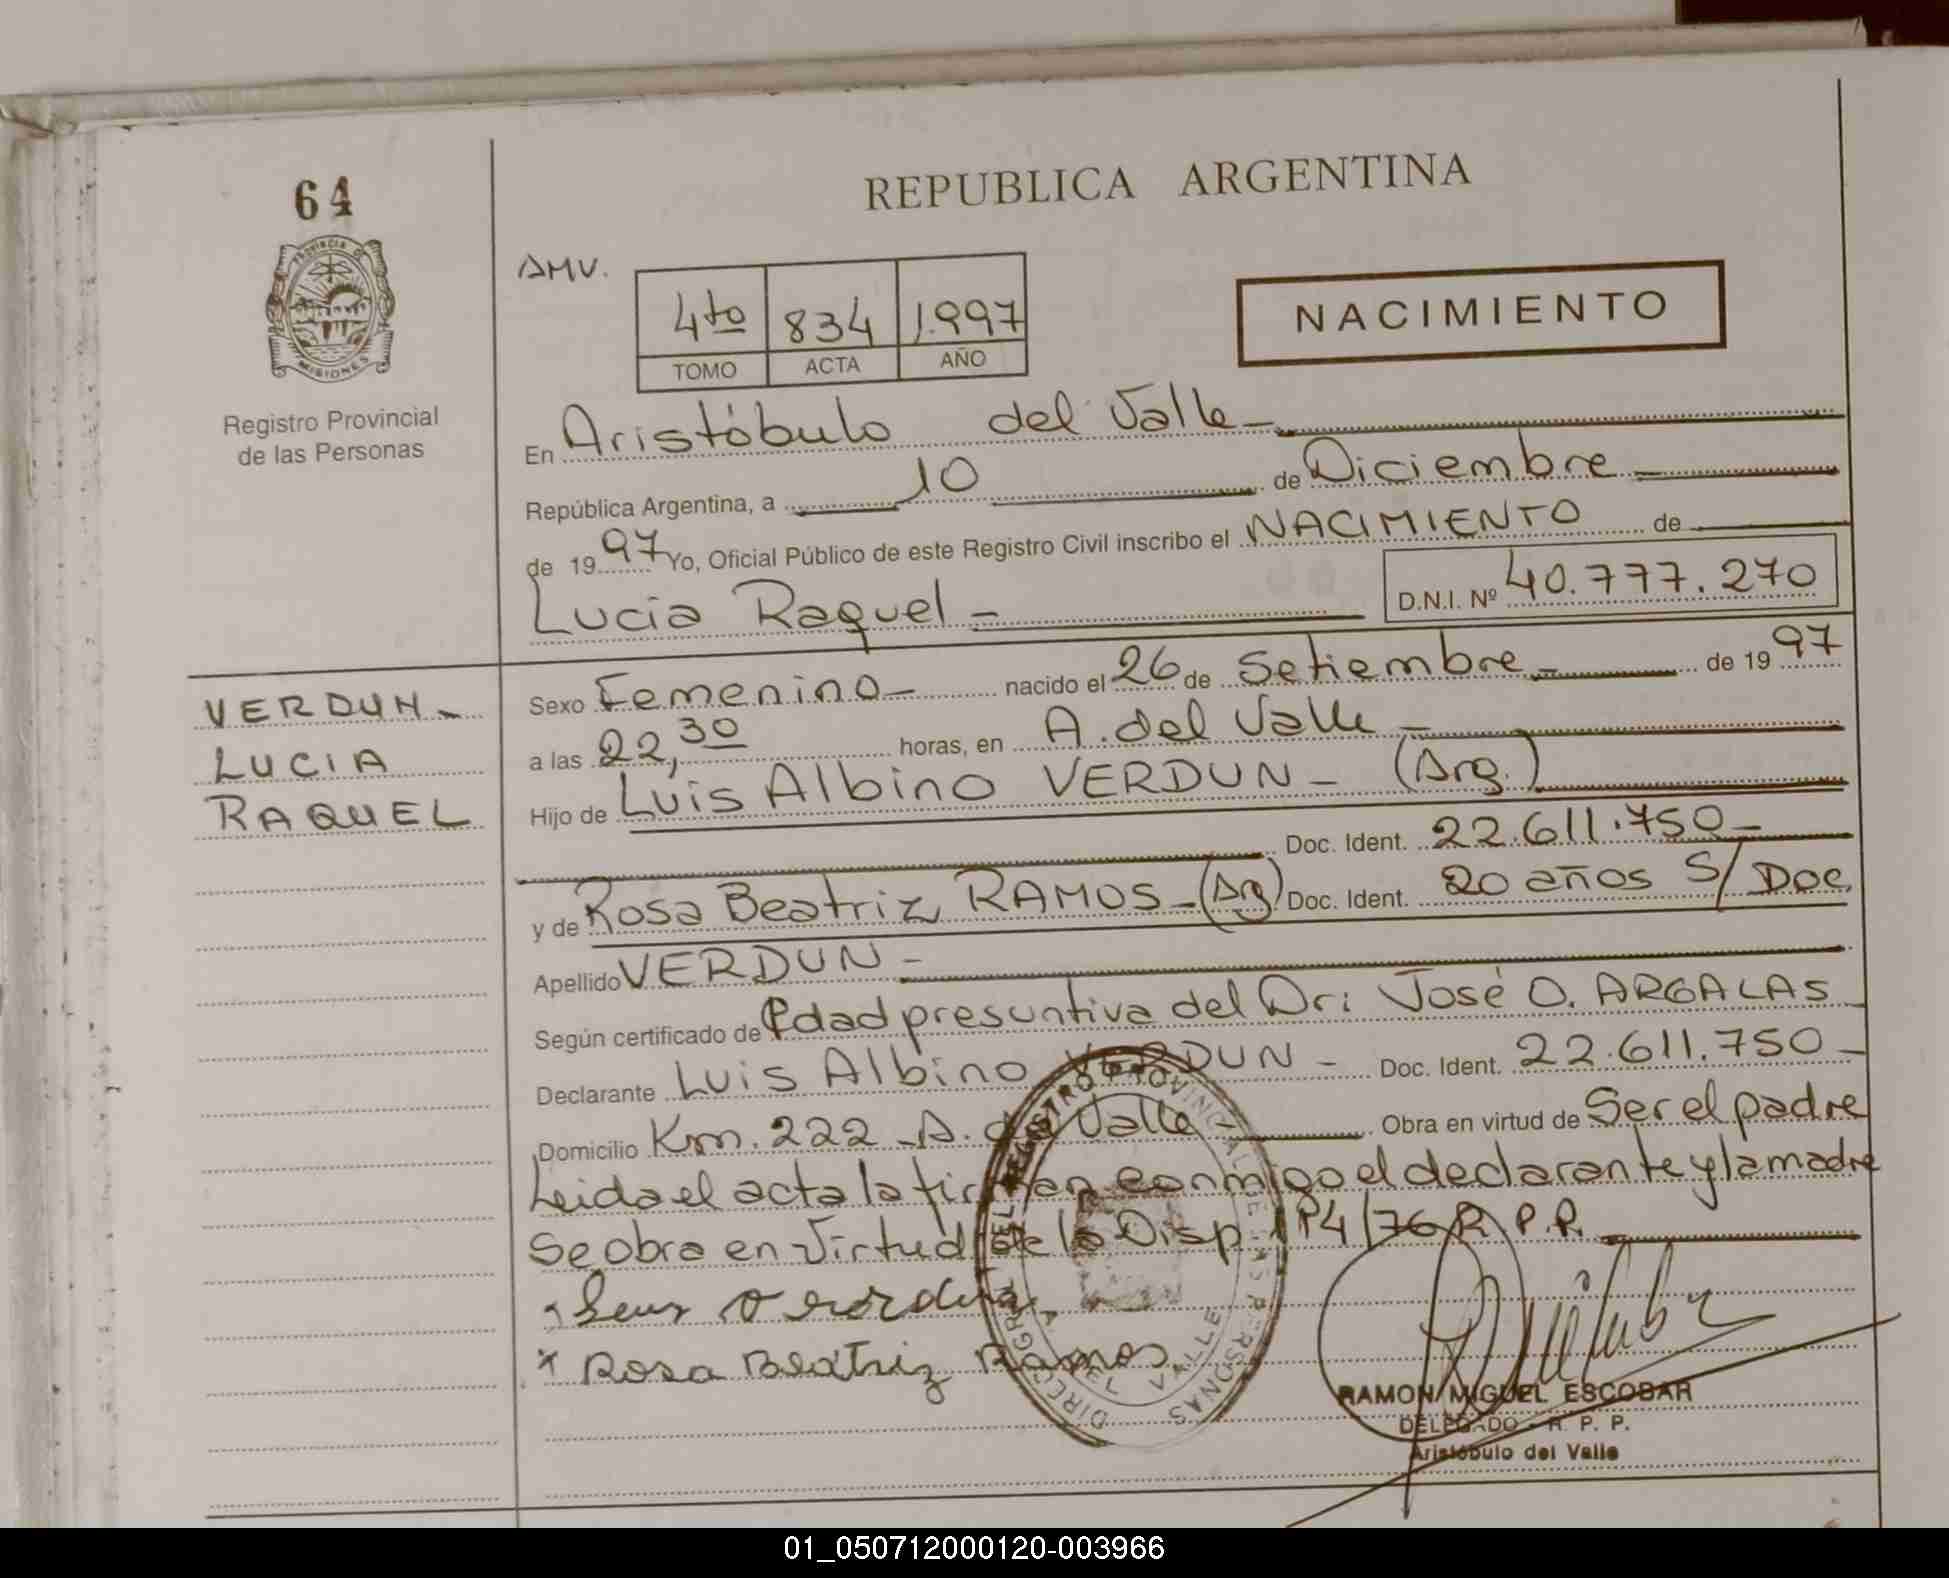 64
REPUBLICA ARGENTINA
PROVINCIA DE
MISIONES
AMV.
4to 834 1.997
TOMO ACTA AÑO
NACIMIENTO
Registro Provincial
de las Personas
En Aristóbulo del Valle-
República Argentina, a 10 de Diciembre
de 1997 Yo, Oficial Público de este Registro Civil inscribo el NACIMIENTO de
Lucia Raquel - D.N.I. Nº 40.777.270
VERDUN-
LUCIA
RAQUEL
Sexo Femenino- nacido el 26 de Setiembre- de 1997
a las 22,30 horas, en A. del Valle-
Hijo de Luis Albino VERDUN- (Arg.)
Doc. Ident. 22.611.750-
y de Rosa Beatriz RAMOS-(Arg) Doc. Ident. 20 años S/Doc
Apellido VERDUN-
Según certificado de Edad presuntiva del Dr: José O. ARGALAS
Declarante Luis Albino VERDUN- Doc. Ident. 22.611.750-
Domicilio Km. 222 -A. del Valle- Obra en virtud de Ser el padre
Leida el acta la firman conmigo el declarante y la madre
Se obra en virtud de la Disp. 14/76 R.P.P.
x Rosa Beatriz Ramos
DIREC. GRAL. DEL REGISTRO PROVINCIAL DE LAS PERSONAS
DEL VALLE
RAMON MIGUEL ESCOBAR
DELEGADO - R. P. P.
Aristóbulo del Valle
01_050712000120-003966